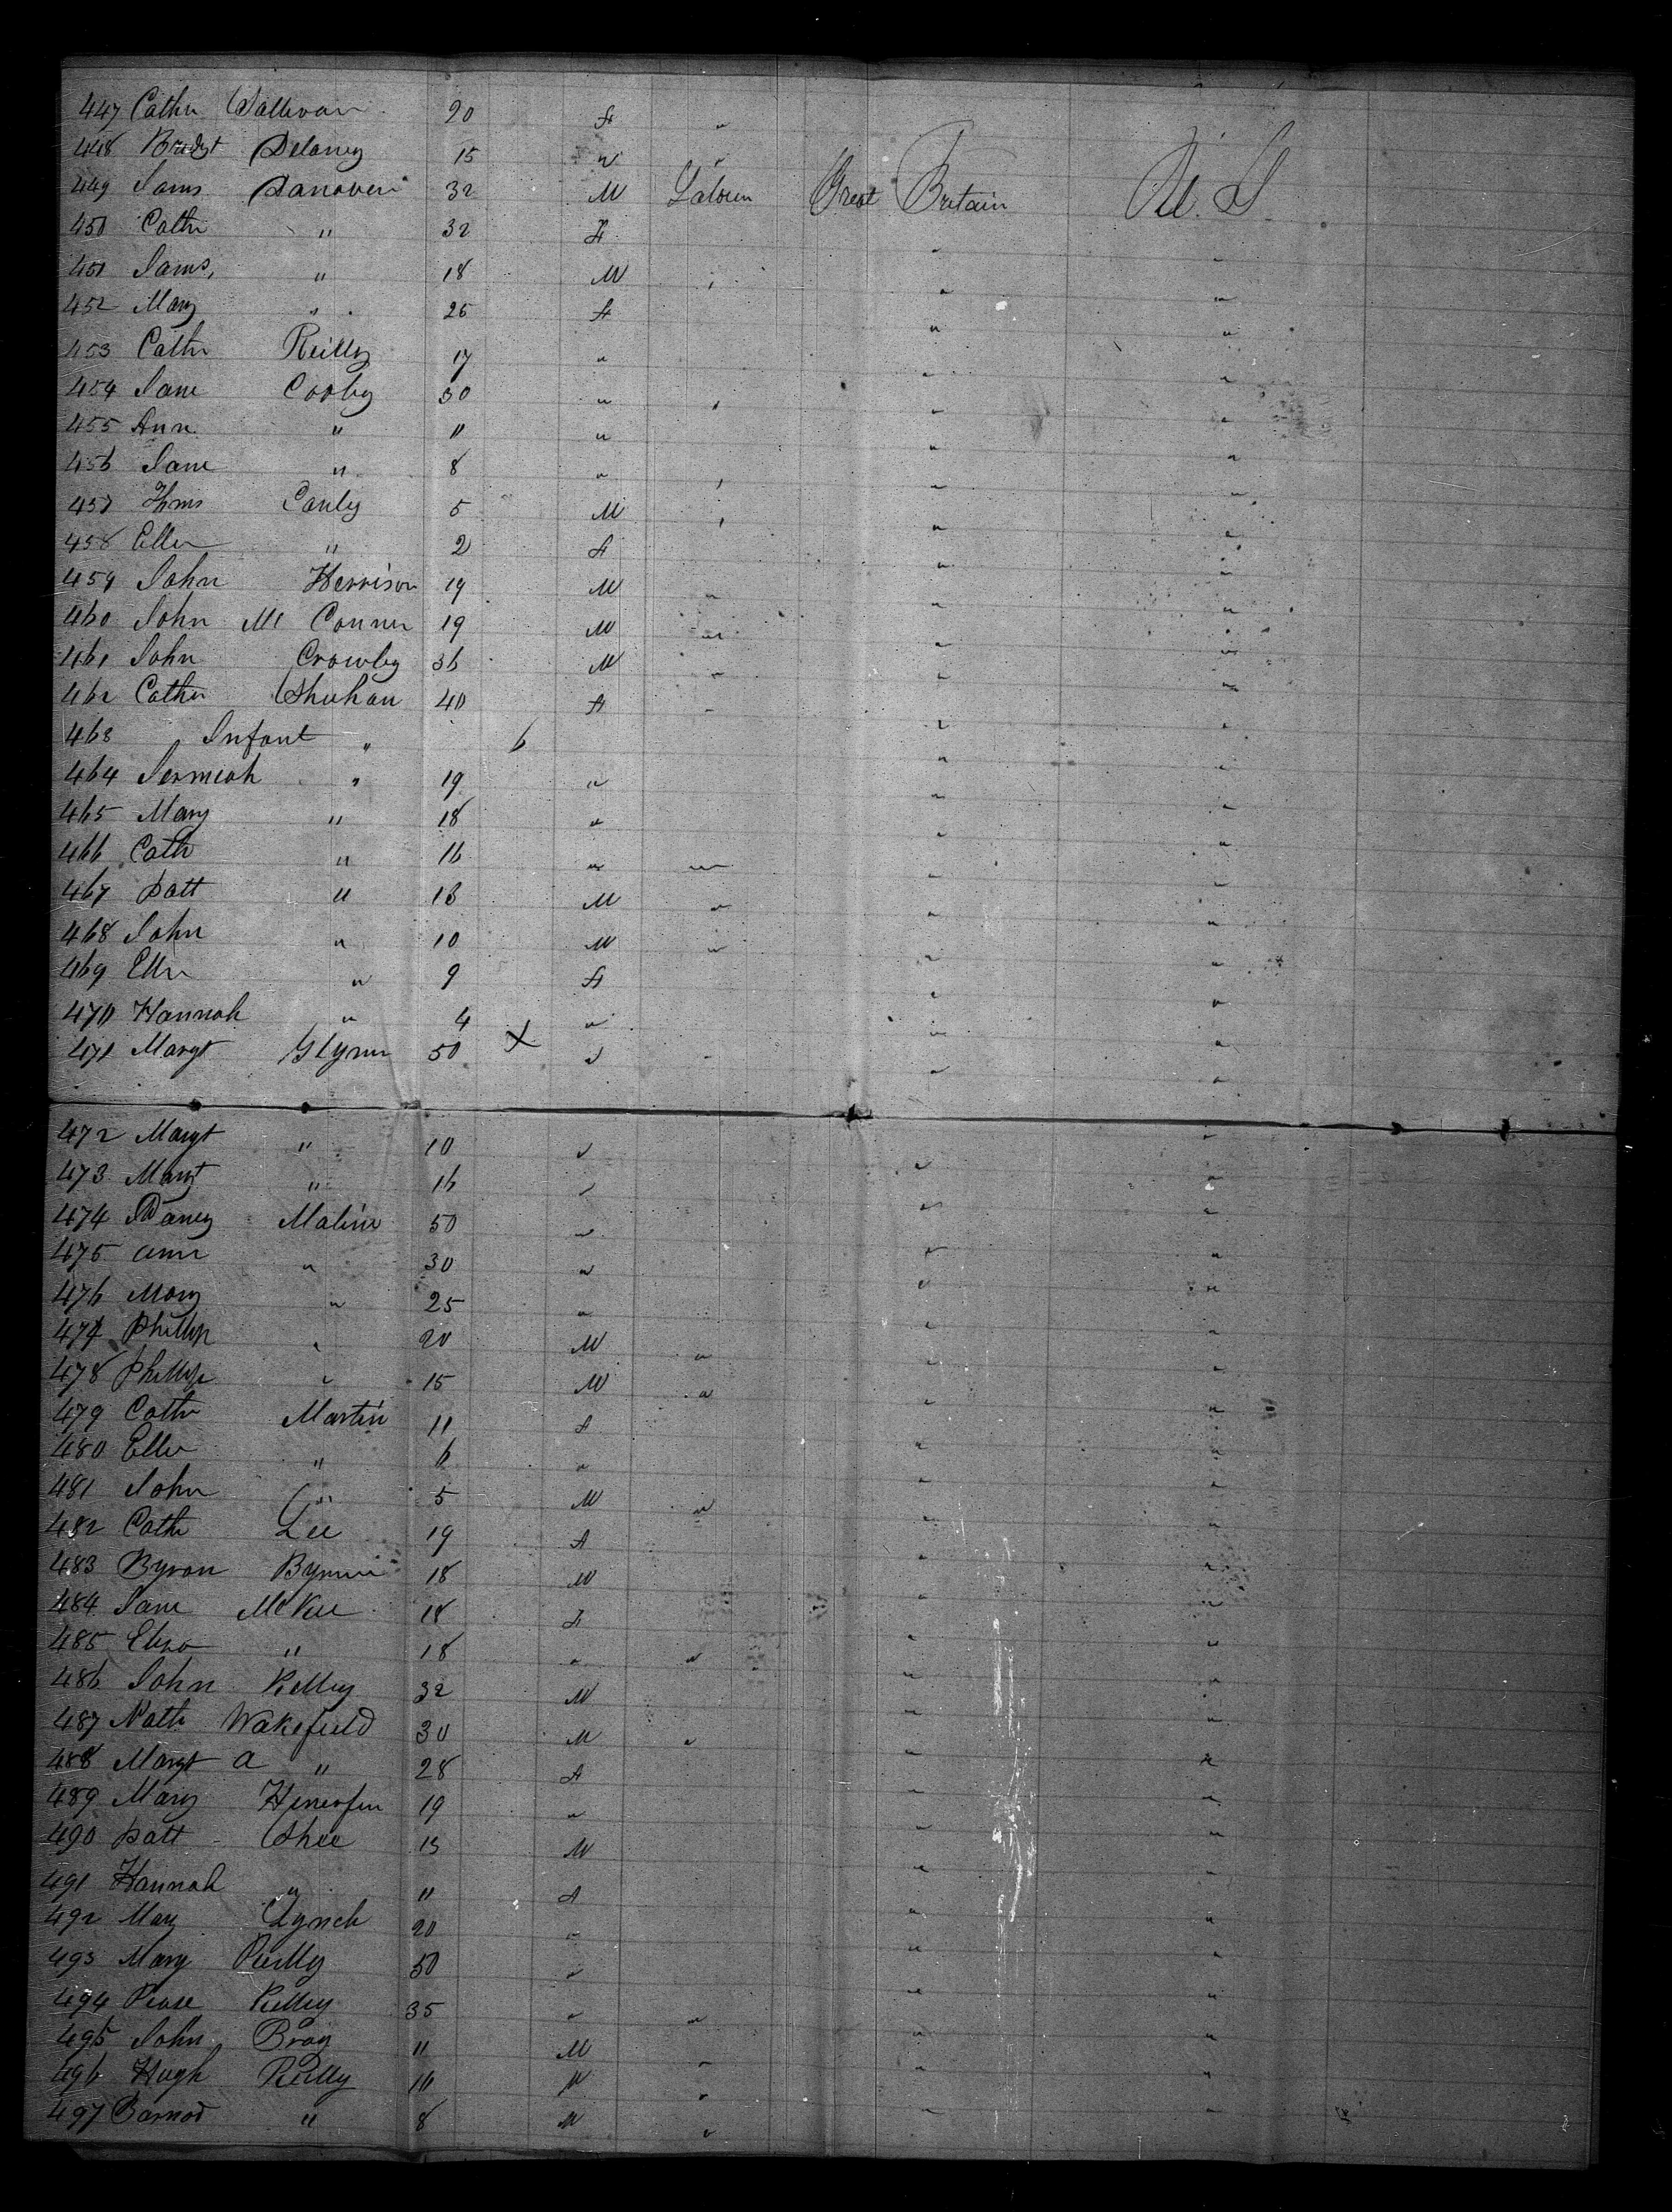 447 Cathn Sullivan 20 F "
448 Bridgt Delaney 15 " "
449 James Danoven 32 M Laborer Great Britain U. S
450 Cathn " 32 F " "
451 James, " 18 M " " "
452 Mary " 25 F " "
453 Cathn Reilly 17 " " "
454 Jane Cooley 30 " " " "
455 Ann " 11 " " "
456 Jane " 8 " " " "
457 Thms Conley 5 M " " "
458 Ellen " 2 F " "
459 John Herrison 19 M " " "
460 John Mc Conner 19 M " " "
461 John Crowley 36 M " " "
462 Cathn Shuhan 40 F " " "
463 Infant " 6 " "
464 Jermiah " 19 " " "
465 Mary " 18 " " "
466 Cath " 16 " " " "
467 Patt " 13 M " " "
468 John " 10 M " " "
469 Elln " 9 F " "
470 Hannah " 4 " " "
471 Margt Glynn 50 X " " " "
472 Margt " 10 " " "
473 Margt " 16 " " "
474 Maline 50 " " "
475 Ann " 30 " " "
476 Mary " 25 " " "
477 Phillip " 20 M " " "
478 Phillip " 15 M " " "
479 Cathn Martin 11 F " "
480 Ellen " 6 " " "
481 John " 5 M " " "
482 Cath Lee 19 F " "
483 Byron 18 M " "
484 Jane McKee 18 F " "
485 Eliza " 18 " " " "
486 John Kelley 32 M " "
487 Nath Wakefield 30 M " " "
488 Margt A " 28 F " "
489 Mary 19 " " "
490 Patt Shee 13 M " "
491 Hannah " 11 F " "
492 Mary Lynch 20 " " "
493 Mary Reilly 50 " " "
494 Kelley 35 " " " "
495 John Bray 11 M " " "
496 Hugh Reilly 16 M " " "
497 Barnad " 8 M " " "